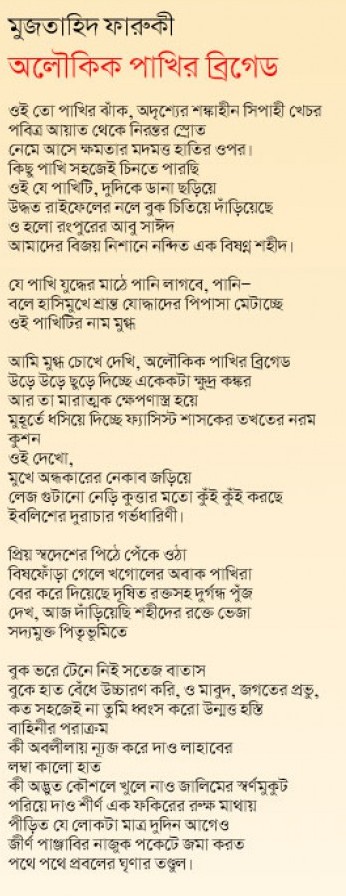 মুজতাহিদ ফারুকী
অলৌকিক পাখির ব্রিগেড
ওই তো পাখির ঝাঁক, অদৃশ্যের শঙ্কাহীন সিপাহী খেচর
পবিত্র আয়াত থেকে নিরন্তর স্রোত
নেমে আসে ক্ষমতার মদমত্ত হাতির ওপর।
কিছু পাখি সহজেই চিনতে পারছি
ওই যে পাখিটি, দুদিকে ডানা ছড়িয়ে
উদ্ধত রাইফেলের নলে বুক চিতিয়ে দাঁড়িয়েছে
ও হলো রংপুরের আবু সাঈদ
আমাদের বিজয় নিশানে নন্দিত এক বিষণ্ন শহীদ।
যে পাখি যুদ্ধের মাঠে পানি লাগবে, পানি–
বলে হাসিমুখে শ্রান্ত যোদ্ধাদের পিপাসা মেটাচ্ছে
ওই পাখিটির নাম মুগ্ধ
আমি মুগ্ধ চোখে দেখি, অলৌকিক পাখির ব্রিগেড
উড়ে উড়ে ছুড়ে দিচ্ছে একেকটা ক্ষুদ্র কঙ্কর
আর তা মারাত্মক ক্ষেপণাস্ত্র হয়ে
মুহূর্তে ধসিয়ে দিচ্ছে ফ্যাসিস্ট শাসকের তখতের নরম
কুশন
ওই দেখো,
মুখে অন্ধকারের নেকাব জড়িয়ে
লেজ গুটানো নেড়ি কুত্তার মতো কুঁই কুঁই করছে
ইবলিশের দুরাচার গর্ভধারিণী।
প্রিয় স্বদেশের পিঠে পেঁকে ওঠা
বিষফোঁড়া গেলে খগোলের অবাক পাখিরা
বের করে দিয়েছে দূষিত রক্তসহ দুর্গন্ধ পুঁজ
দেখ, আজ দাঁড়িয়েছি শহীদের রক্তে ভেজা
সদ্যমুক্ত পিতৃভূমিতে
বুক ভরে টেনে নিই সতেজ বাতাস
বুকে হাত বেঁধে উচ্চারণ করি, ও মাবুদ, জগতের প্রভু,
কত সহজেই না তুমি ধ্বংস করো উন্মত্ত হস্তি
বাহিনীর পরাক্রম
কী অবলীলায় ন্যুব্জ করে দাও লাহাবের
লম্বা কালো হাত
কী অদ্ভুত কৌশলে খুলে নাও জালিমের স্বর্ণমুকুট
পরিয়ে দাও শীর্ণ এক ফকিরের রুক্ষ মাথায়
পীড়িত যে লোকটা মাত্র দুদিন আগেও
জীর্ণ পাঞ্জাবির নাজুক পকেটে জমা করত
পথে পথে প্রবলের ঘৃণার তণ্ডুল।